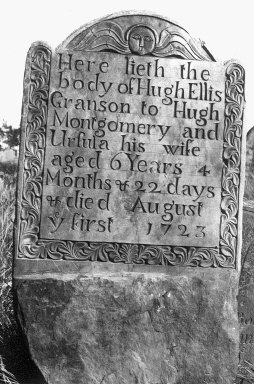 Here lieth the
body of Hugh Ellis
Granson to Hugh
Montgomery and
Ursula his wife
aged 6 Years 4
Months & 22 days
& died August
y first 1723